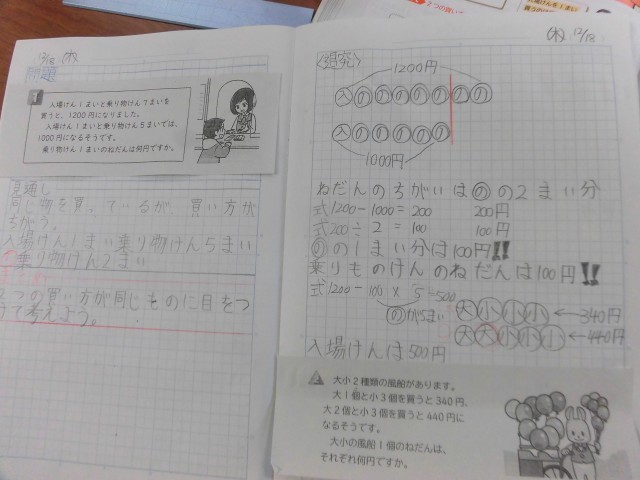 12/18 (木)
問題
1
入場けん1まいと乗り物けん7まいを
買うと、1200円になりました。
入場けん1まいと乗り物けん5まいでは、
1000円になるそうです。
乗り物けん1まいのねだんは何円ですか。
見通し
同じ物を買っているが、買い方が
ちがう。
入場けん1まい乗り物けん5まい
乗り物けん2まい
2つの買い方が同じものに目をつ
けて考えよう。
(木) 12/18
1200円
入 の の の の の の の
入 の の の の の
1000円
ねだんのちがいは の の2まい分
式1200-1000=200 200円
式200÷2=100 100円
の の1まい分は100円!!
乗りものけんのねだんは100円!!
式1200-100×5=500
の が5まい
大 小 小 小 ←340円
大 大 小 小 小 ←440円
入場けんは500円
2
大小2種類の風船があります。
大1個と小3個を買うと340円、
大2個と小3個を買うと440円に
なるそうです。
大小の風船1個のねだんは、
それぞれ何円ですか。